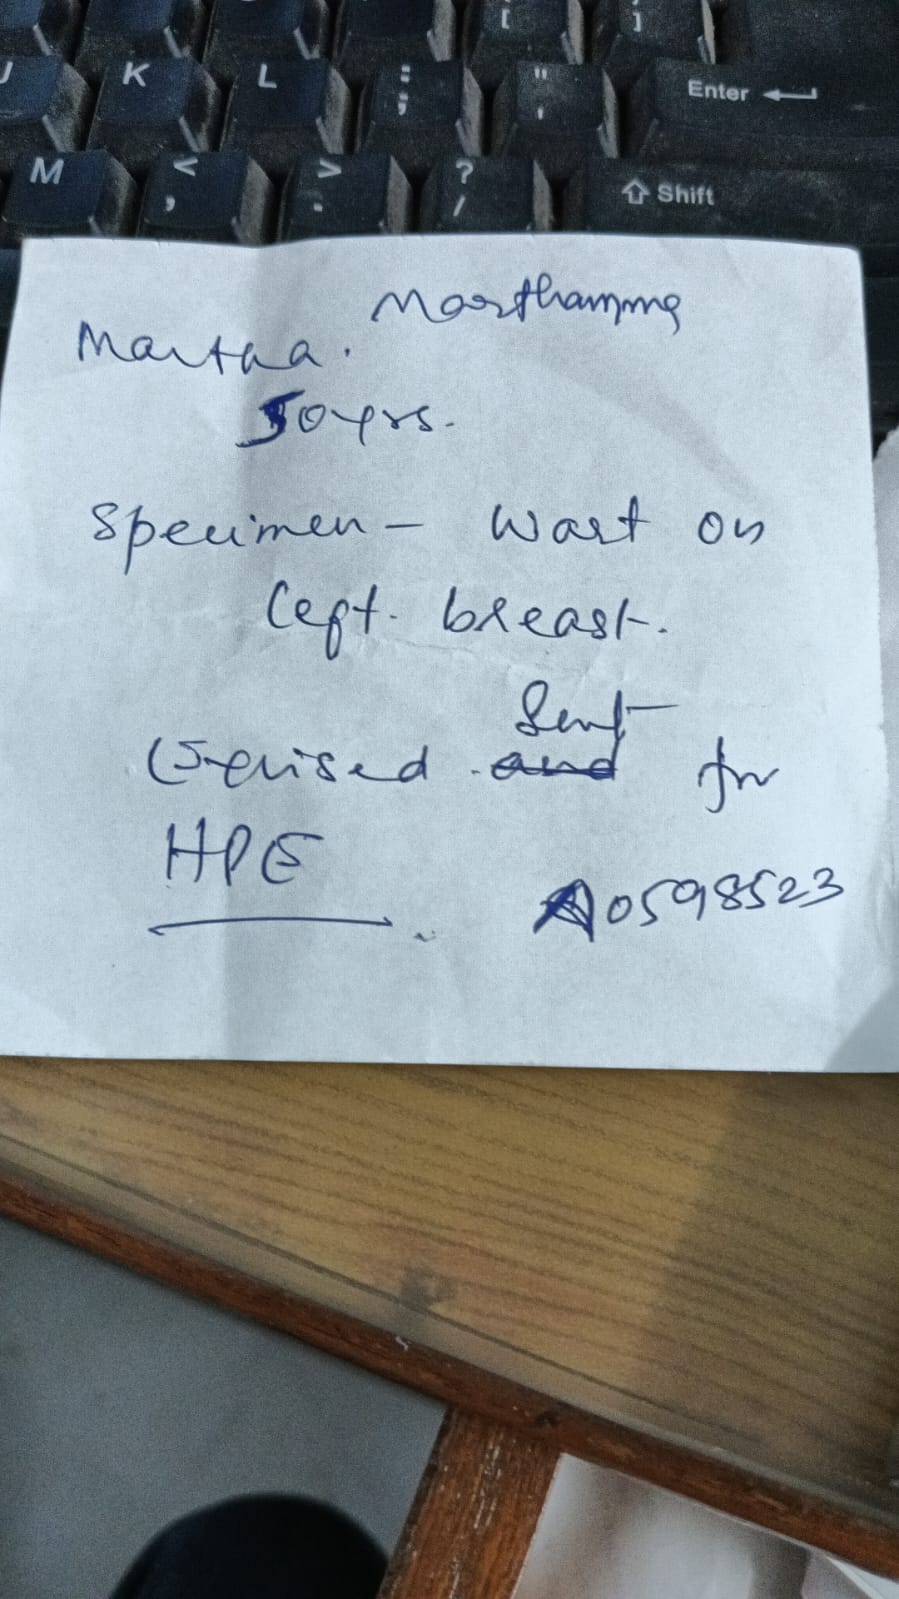 [ ]
J K L : ; " ' Enter
M < , > . ? / Shift
Marthamma
Martha.
50yrs.
Specimen - Wart on
left. breast.
Sent
Excised and for
HPE
A0598523